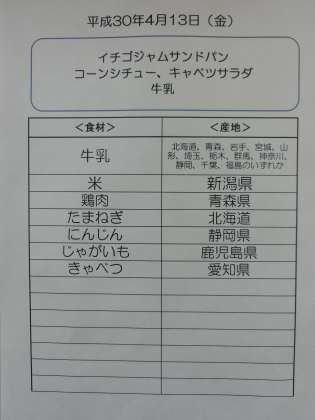 平成30年4月13日（金）
イチゴジャムサンドパン
コーンシチュー、キャベツサラダ
牛乳
＜食材＞ ＜産地＞
牛乳 北海道、青森、岩手、宮城、山
形、埼玉、栃木、群馬、神奈川、
静岡、千葉、福島のいずれか
米 新潟県
鶏肉 青森県
たまねぎ 北海道
にんじん 静岡県
じゃがいも 鹿児島県
きゃべつ 愛知県